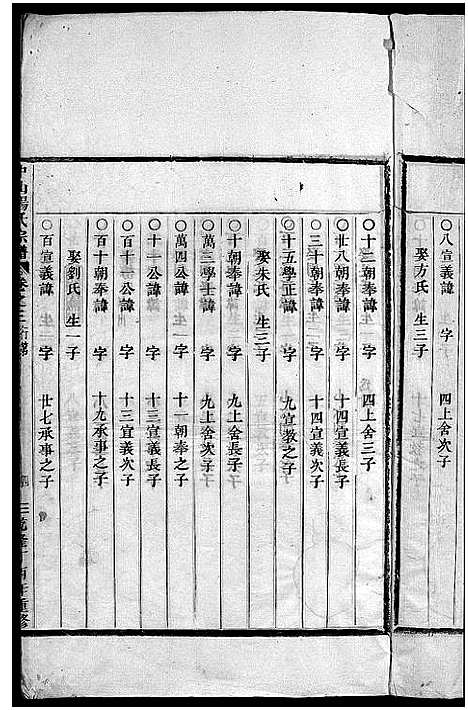 ○八宣義諱 字 四上舍次子
娶方氏 生三子
○十二朝奉諱 字 四上舍三子
○廿八朝奉諱 字 十四宣義長子
○三十朝奉諱 字 十四宣義次子
○十五學正諱 字 九宣教之子
娶朱氏 生三子
○十朝奉諱 字 九上舍長子
○萬三學士諱 字 九上舍次子
○萬四公諱 字 十一朝奉之子
○十一公諱 字 十三宣義長子
○百十一公諱 字 十三宣義次子
○百十朝奉諱 字 十九承事之子
娶劉氏 生一子
○百宣義諱 字 廿七承事之子